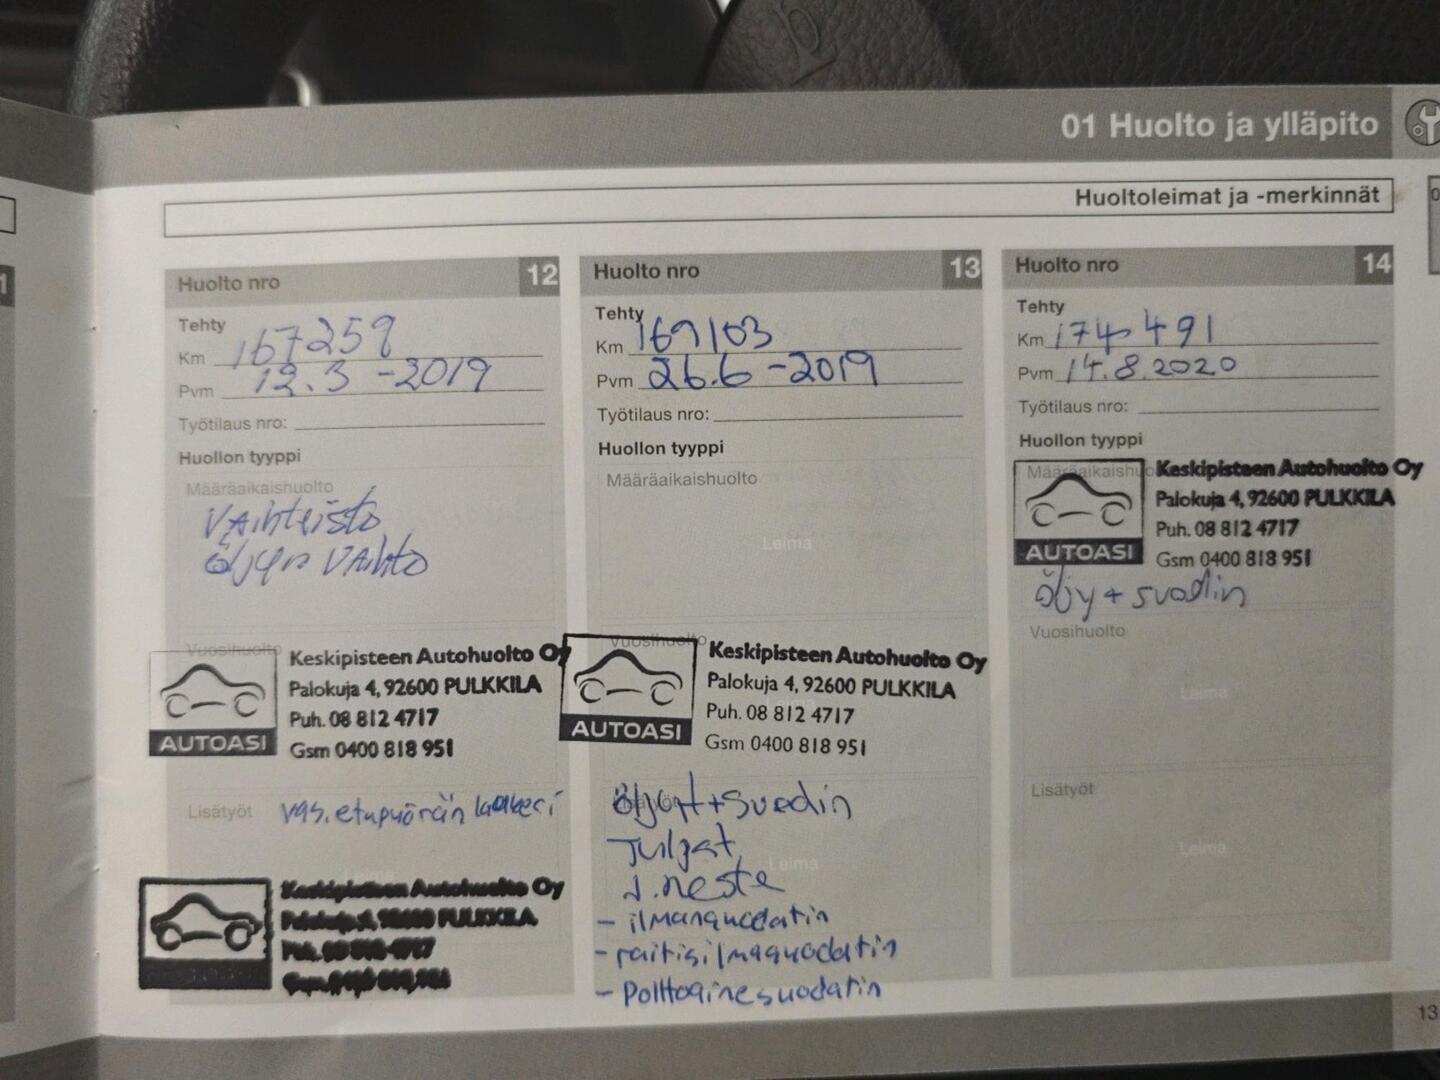 01 Huolto ja ylläpito
Huoltoleimat ja -merkinnät
Huolto nro 12
Tehty
Km 167259
Pvm 12.3 -2019
Työtilaus nro:
Huollon tyyppi
Määräaikaishuolto
VAihteisto
öljyn VAihto
Vuosihuolto
Keskipisteen Autohuolto Oy
Palokuja 4, 92600 PULKKILA
Puh. 08 812 4717
Gsm 0400 818 951
AUTOASI
Lisätyöt vas. etupyörän laakeri
Keskipisteen Autohuolto Oy
Palokuja 4, 92600 PULKKILA
Puh. 08 812 4717
Huolto nro 13
Tehty
Km 169103
Pvm 26.6 -2019
Työtilaus nro:
Huollon tyyppi
Määräaikaishuolto
Leima
Vuosihuolto
Keskipisteen Autohuolto Oy
Palokuja 4, 92600 PULKKILA
Puh. 08 812 4717
Gsm 0400 818 951
AUTOASI
Lisätyöt
öljyt + suodin
Tulpat
Leima
J.neste
- ilmansuodatin
- raitisilmasuodatin
- Polttoainesuodatin
Huolto nro 14
Tehty
Km 174 491
Pvm 14.8.2020
Työtilaus nro:
Huollon tyyppi
Määräaikaishuolto
Keskipisteen Autohuolto Oy
Palokuja 4, 92600 PULKKILA
Puh. 08 812 4717
Gsm 0400 818 951
AUTOASI
öljy + suodin
Vuosihuolto
Leima
Lisätyöt
Leima
13